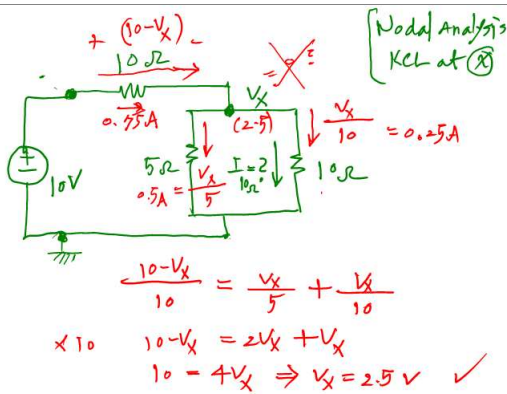 + (10-Vx) -
10Ω
Nodal Analysis
KCL at Ⓧ
= X ?
0.75A
Vx
(2.5)
Vx/10 = 0.25A
10V
5Ω
0.5A = Vx/5
I10Ω = ?
10Ω
(10-Vx)/10 = Vx/5 + Vx/10
×10 10-Vx = 2Vx + Vx
10 = 4Vx ⇒ Vx = 2.5 V ✓